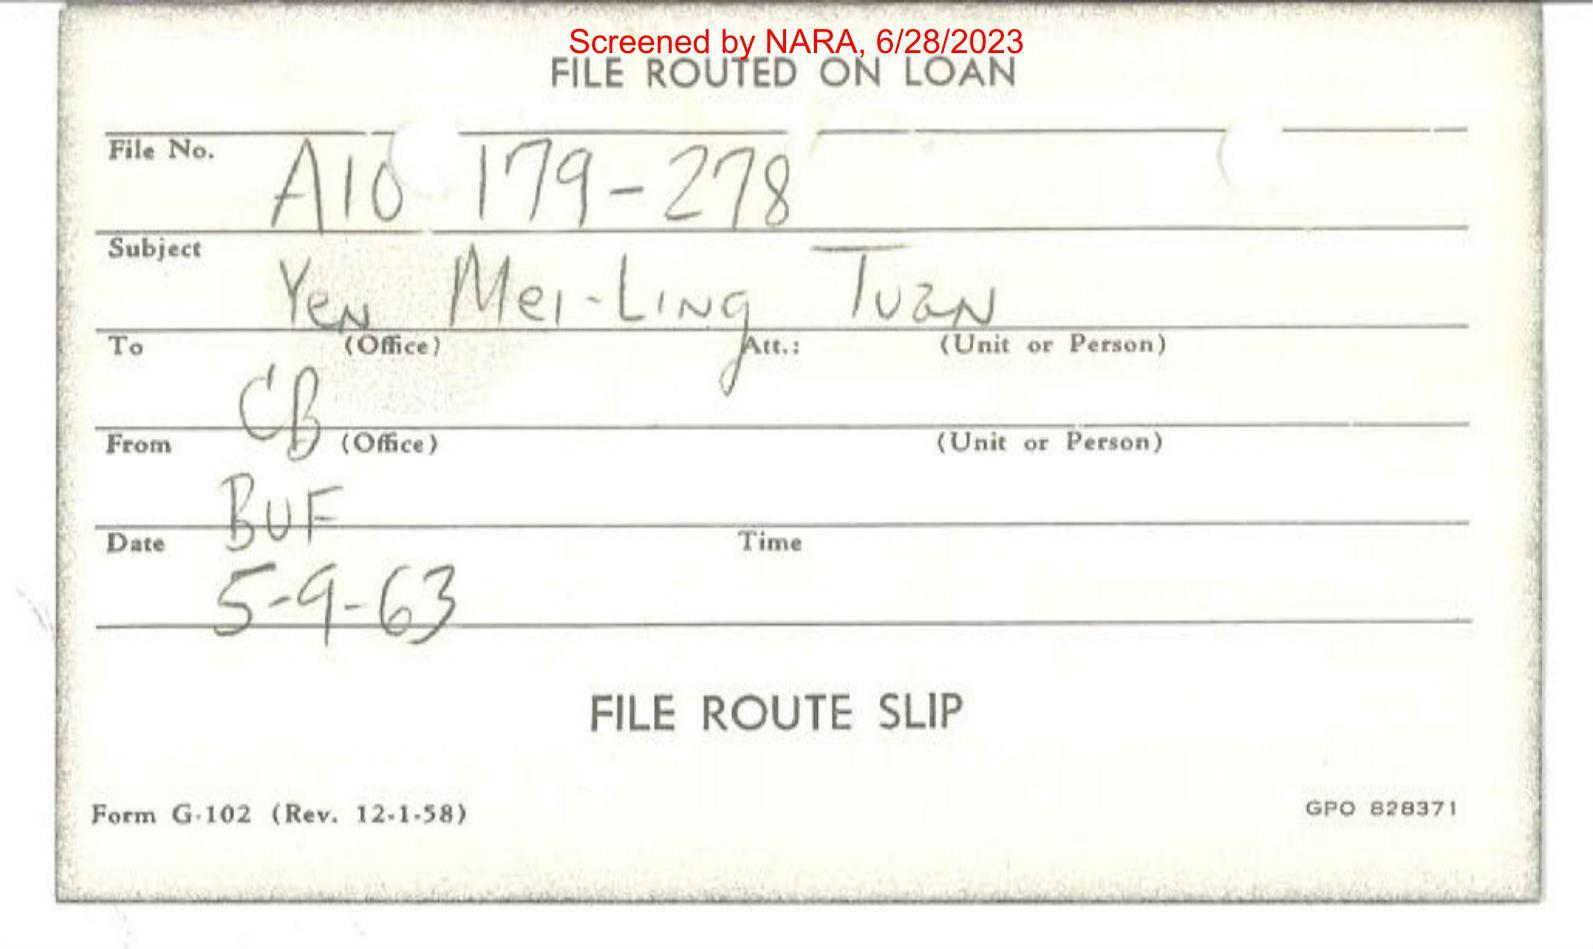 Screened by NARA, 6/28/2023
FILE ROUTED ON LOAN
File No. A10 179-278
Subject Yen Mei-Ling Tuan
To (Office) Att.: (Unit or Person)
CB
From (Office) (Unit or Person)
BUF
Date Time
5-9-63
FILE ROUTE SLIP
Form G-102 (Rev. 12-1-58) GPO 828371